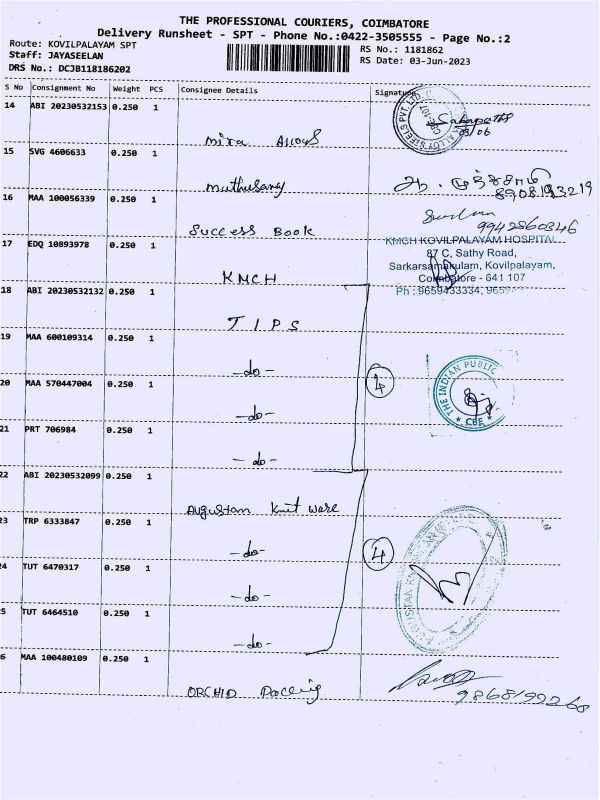 THE PROFESSIONAL COURIERS, COIMBATORE
Delivery Runsheet - SPT - Phone No.:0422-3505555 - Page No.:2
Route: KOVILPALAYAM SPT
Staff: JAYASEELAN
DRS No.: DCJB118186202
RS No.: 1181862
RS Date: 03-Jun-2023
S No Consignment No Weight PCS Consignee Details Signature
14 ABI 20230532153 0.250 1
03/06
Mira Alloys
15 SVG 4606633 0.250 1
Muthusamy
அ. முத்துசாமி
16 MAA 100056339 0.250 1
Success Book
9942860346
17 EDQ 10893978 0.250 1
KMCH KOVILPALAYAM HOSPITAL
87 C, Sathy Road,
Sarkarsamakulam, Kovilpalayam,
Coimbatore - 641 107
Ph : 9659433334,
KMCH
18 ABI 20230532132 0.250 1
TIPS
19 MAA 600109314 0.250 1
-do-
4
THE INDIAN PUBLIC
CBE
20 MAA 570447004 0.250 1
-do-
21 PRT 706984 0.250 1
-do-
22 ABI 20230532099 0.250 1
Augustan Knit ware
23 TRP 6333847 0.250 1
-do-
4
24 TUT 6470317 0.250 1
-do-
25 TUT 6464510 0.250 1
-do-
26 MAA 100480109 0.250 1
ORCHID Packing
9868192268